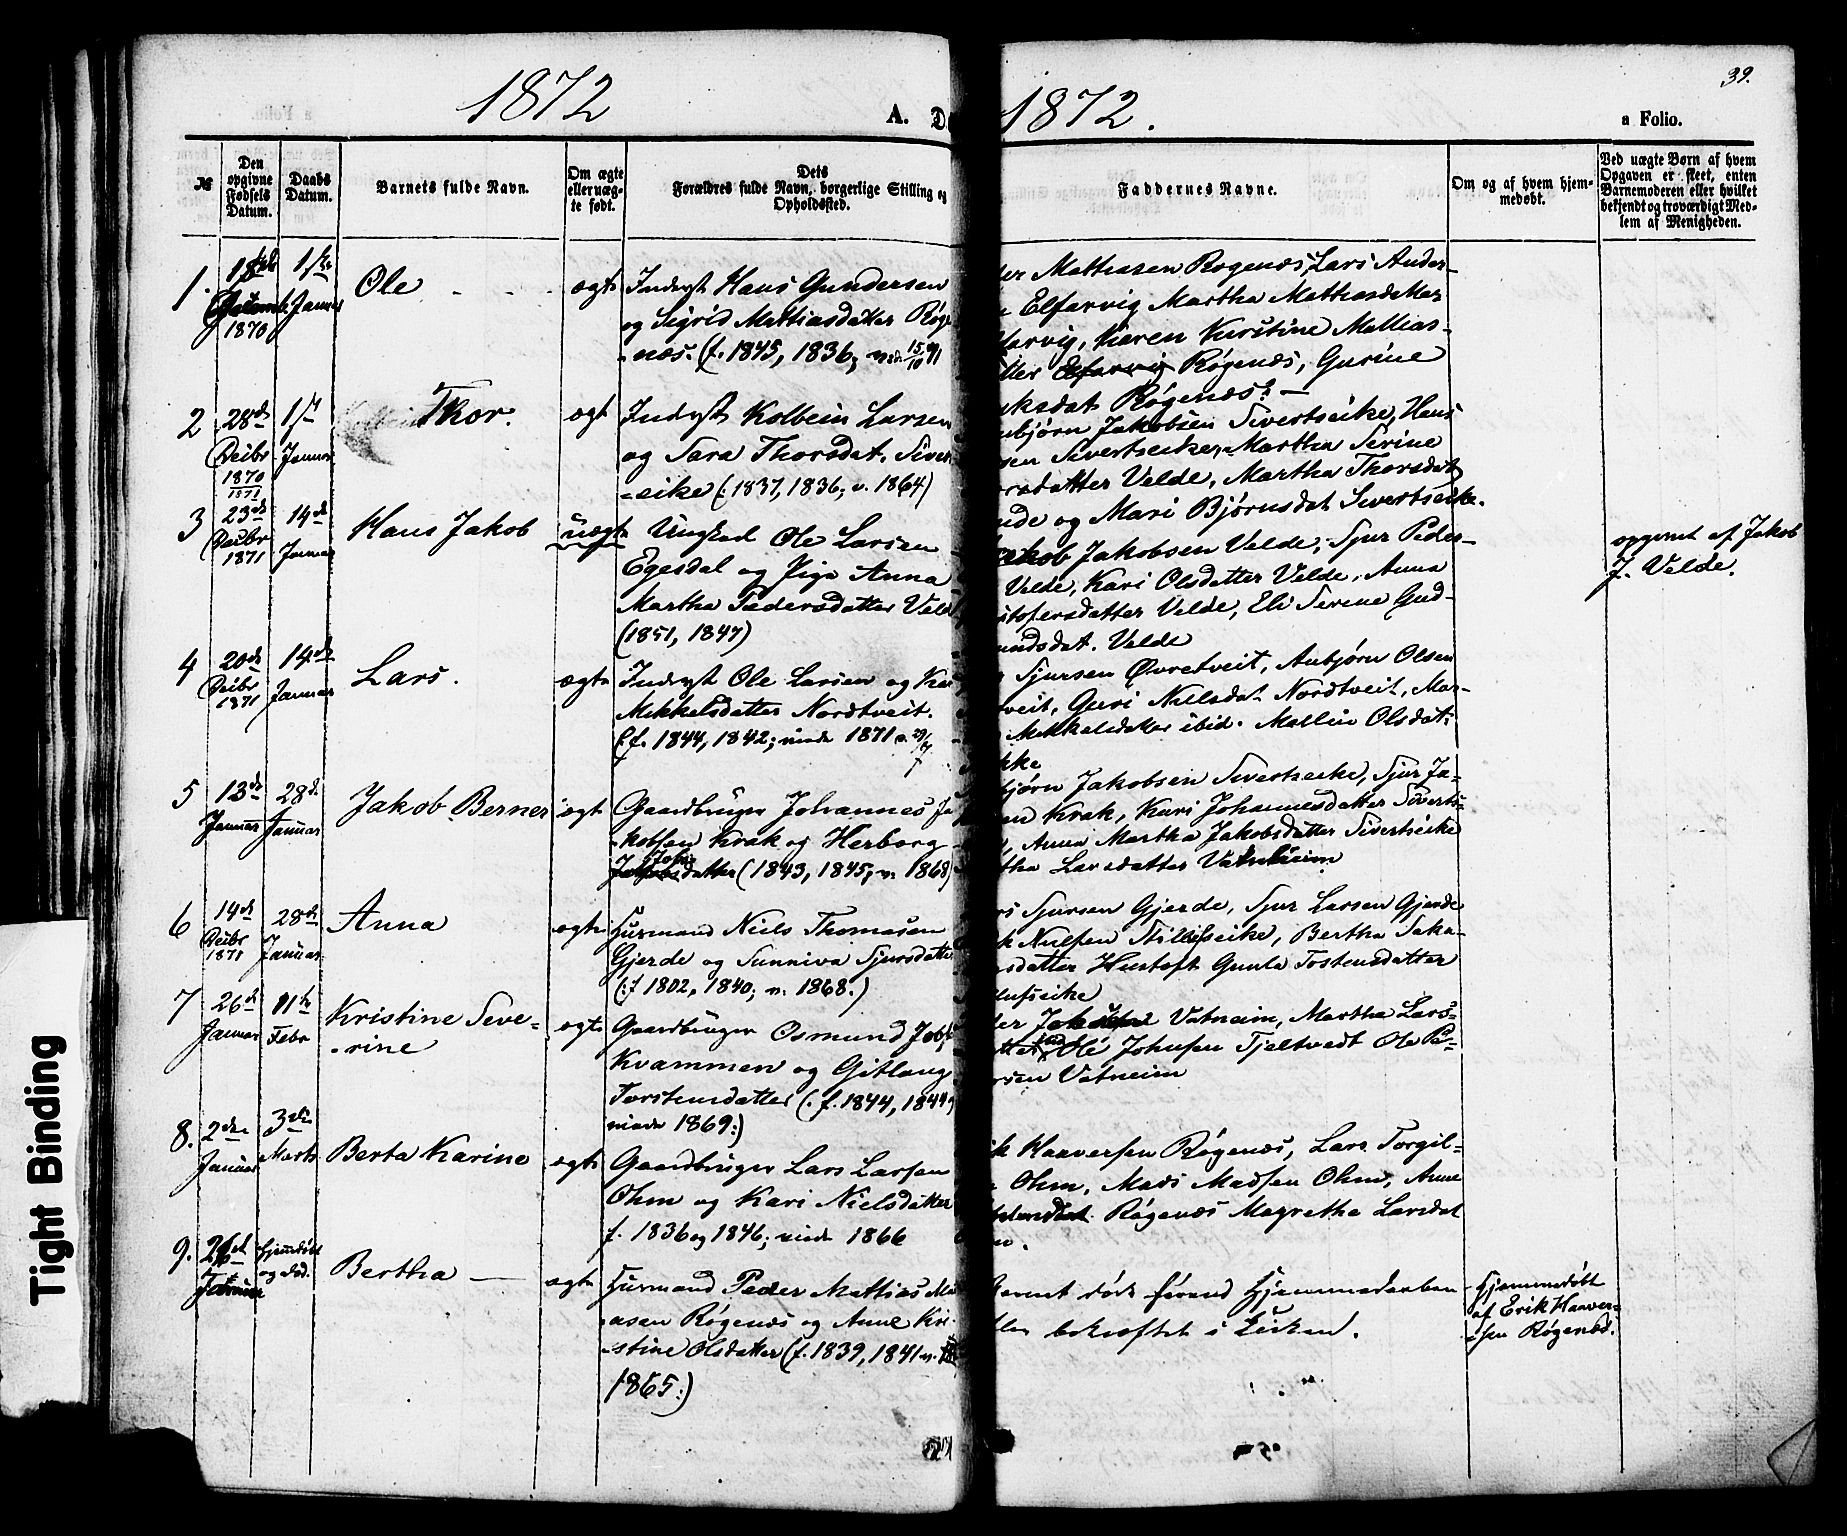 1872
A. D
1872.
39.
a Folio.
№
Den opgivne Fødsels Datum.
Daabs Datum.
Barnets fulde Navn.
Om ægte eller uæg-te født.
Dets Forældres fulde Navn, borgerlige Stilling og Opholdssted.
Faddernes Navne.
Om og af hvem hjem-medøbt.
Ved uægte Børn af hvem Opgaven er skeet, enten Barnemoderen eller hvilket bekjendt og troværdigt Med-lem af Menigheden.
1. 18de Decemb. 1870
1ste Januar
Ole
ægte
Inderst Hans Gundersen
og Sigrid Mattiasdatter Røge
-næs. (f. 1845, 1836; 15/10 71
der Mathiasen Røgenæs, Lars Ander-
Elfarvig Martha Mathiasdatter
farvig, Karen Kirstine Mattias-
tter Elfarvig Røgenæs, Gurine
iksdat Røgenæs. —
2 28de Decbr 1870 1871
1ste Januar
Thor.
ægt
Inderst Kolbein Larsen
og Sara Thorsdat. Siver
-eike (: 1837, 1836; v. 1864)
nbjørn Jakobsen Sivertseike, Hans
sen Sivertseike, Martha Serine
rsdatter Velde, Martha Thorsdat
nde og Mari Bjørnsdat Sivertseike.
3 23de Decbr 1871
14de Januar
Hans Jakob
uægte
Ungkarl Ole Larsen
Egesdal og Pige Anna
Martha Pedersdatter Veld
(1851, 1847)
Jakob Jakobsen Velde, Sjur Peder-
Velde, Kari Olsdatter Velde, Anna
istofersdatter Velde, Eli Serine Gud-
mundsdat. Velde
opgivet af Jakob
J. Velde.
4 20de Decbr 1871
14de Januar
Lars.
ægte
Inderst Ole Larsen og Kar
Mikkelsdatter Nordtveit.
(: f. 1844, 1842; viede 1871
Sjursen Øvretveit, Anbjørn Olsen
tveit, Guri Nilsdat Nordtveit, Mar-
Mikkelsdatter ibid. Mallin Olsdat:
kke
5 13de Januar
28de Januar
Jakob Berner
ægt
Gaardbruger Johannes Ja
-kobsen Krak og Herborg
Johs
Jakobsdatter (1843, 1845, v. 1868)
bjørn Jakobsen Sivertseike, Sjur Ja-
en Krak, Kari Johannesdatter Siverts-
, Anna Martha Jakobsdatter Sivertseike
tha Larsdatter Vatneim
6 14de Decbr 1871
28de Januar
Anna
ægte
Husmand Niels Thomasen
Gjerde og Sunniva Sjursdatter
(: f 1802, 1840; v. 1868.)
rs Sjursen Gjerde, Sjur Larsen Gjerde
k Nilsen Stillufseike, Bertha Jako-
sdatter Hustoft Gunla Tostensdatter
lufseike
7 26de Januar
11te Febr
Kristine Seve-
-rine
ægte
Gaardbruger Osmund Jobs
Kvammen og Gitlaug
Torstensdatter (: f. 1844, 1844
viede 1869:)
der Vatneim, Martha Lars-
tter Ole Johnsen Tjeltvedt Ole Pe-
rsen Vatneim
8. 2den Januar
3die Marts
Berta Karine
ægte
Gaardbruger Lars Larsen
Ohm og Kari Nielsdatter
f. 1836 og 1846; viede 1866
ik Haaversen Røgenæs, Lars Torgil-
Ohm, Mads Madsen Ohm, Anne
Røgenæs Magretha Larsdat
m.
9. 26de Februar
hjemdøbt
og død.
Bertha —
ægte
Husmand Peder Mattias Ma
-asen Røgenæs og Anne Kri-
-stine Olsdatter (f. 1839, 1841 v.
1865:)
Barnet døde førend Hjemmedaaben
blev bekræftet i Kirken.
Hjemmedøbt
af Erik Haaver-
-sen Røgenæs.
Tight Binding